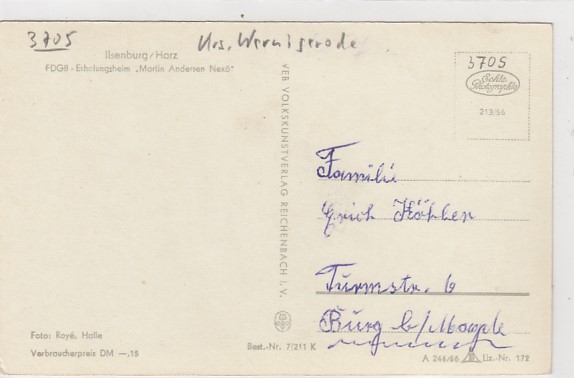 3705
Krs. Wernigerode
Ilsenburg/Harz
FDGB - Erholungsheim „Martin Andersen Nexö"
3705
Echte Photographie
213/56
VEB VOLKSKUNSTVERLAG REICHENBACH I. V.
Familie
Erich Köhler
Turmstr. 6
Burg b/
Foto: Royé, Halle
Verbraucherpreis DM —.15
Best.-Nr. 7/211 K
A 246/56
Liz.-Nr. 172